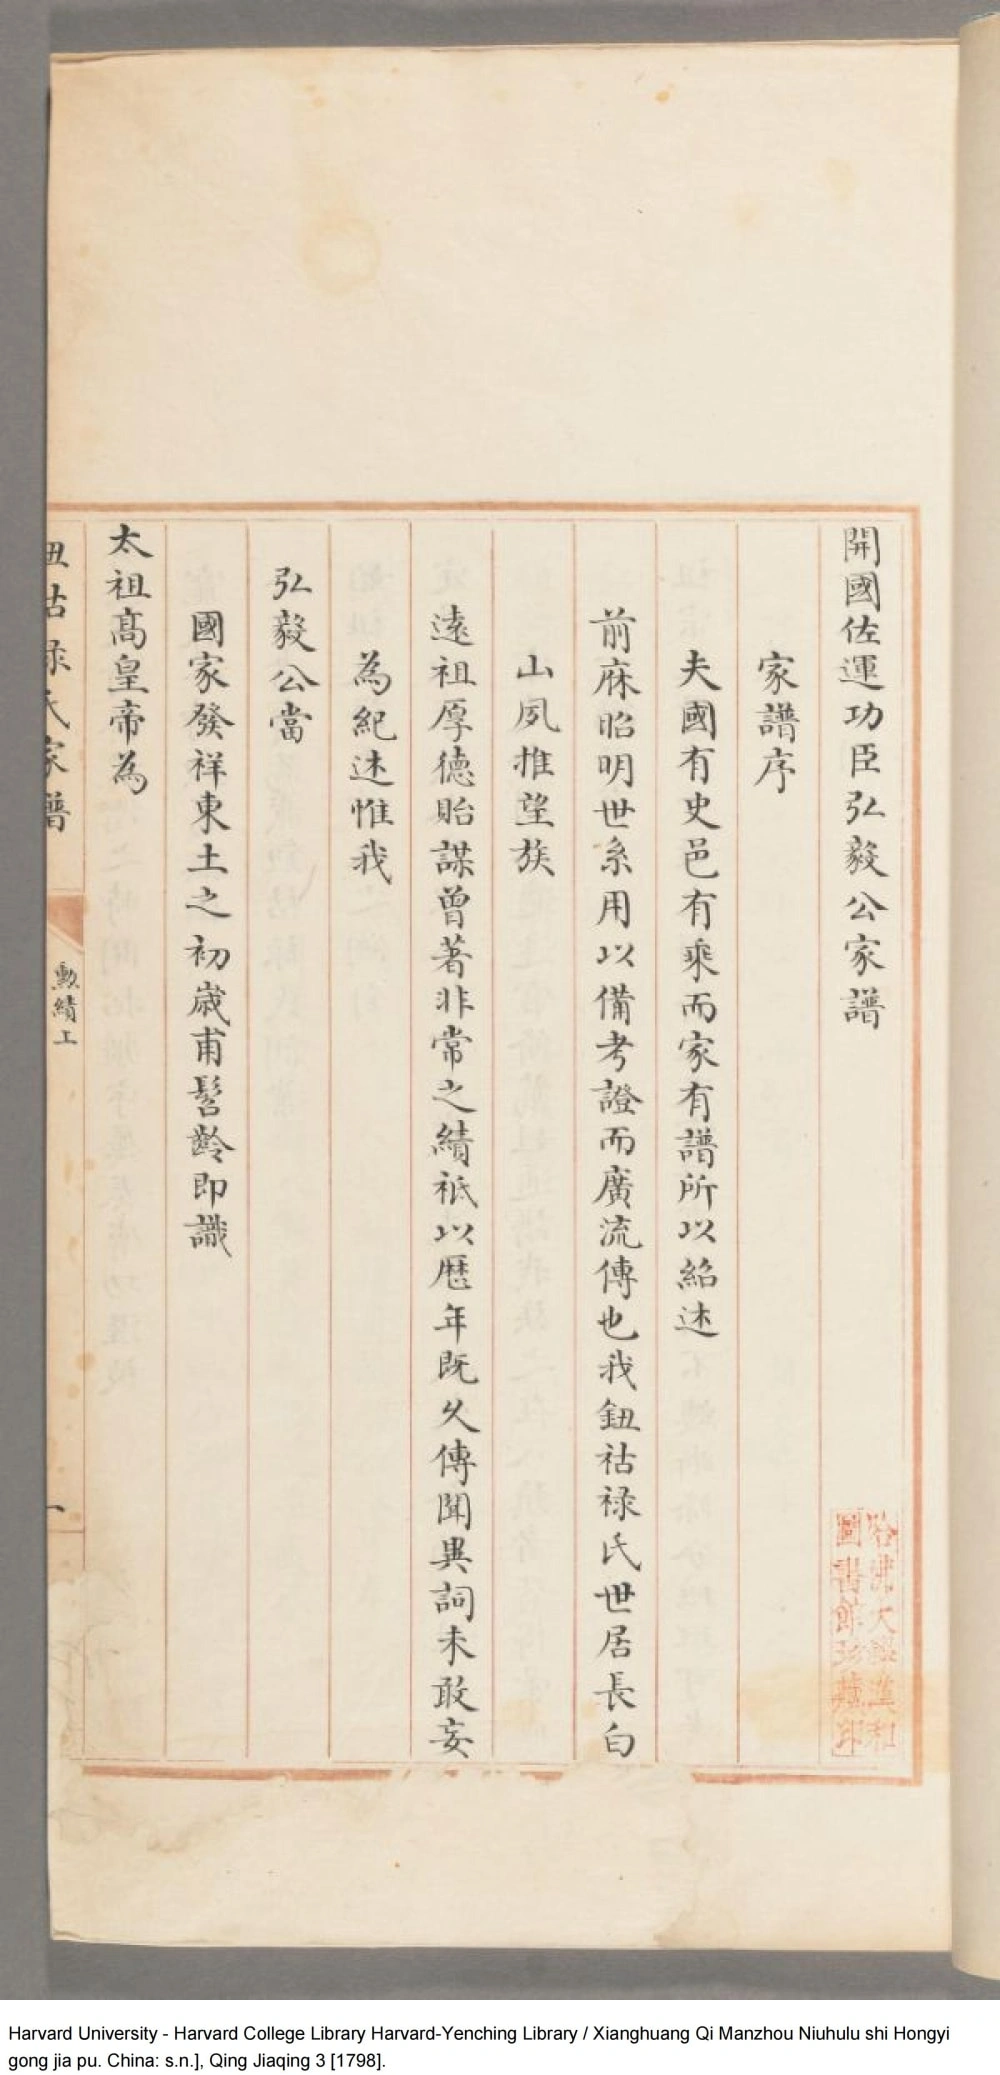 開國佐運功臣弘毅公家譜
家譜序
夫國有史邑有乘而家有譜所以紹述
前庥昭明世系用以備考證而廣流傳也我鈕祜禄氏世居長白
山夙推望族
遠祖厚德貽謀曾著非常之績祇以歴年既久傳聞異詞未敢妄
為紀述惟我
弘毅公當
國家發祥東土之初歲甫髫齡即識
太祖髙皇帝為
鈕祜禄氏家譜
勲績上
一
哈佛大學漢和
圖書館珍藏印
Harvard University - Harvard College Library Harvard-Yenching Library / Xianghuang Qi Manzhou Niuhulu shi Hongyi
gong jia pu. China: s.n.], Qing Jiaqing 3 [1798].